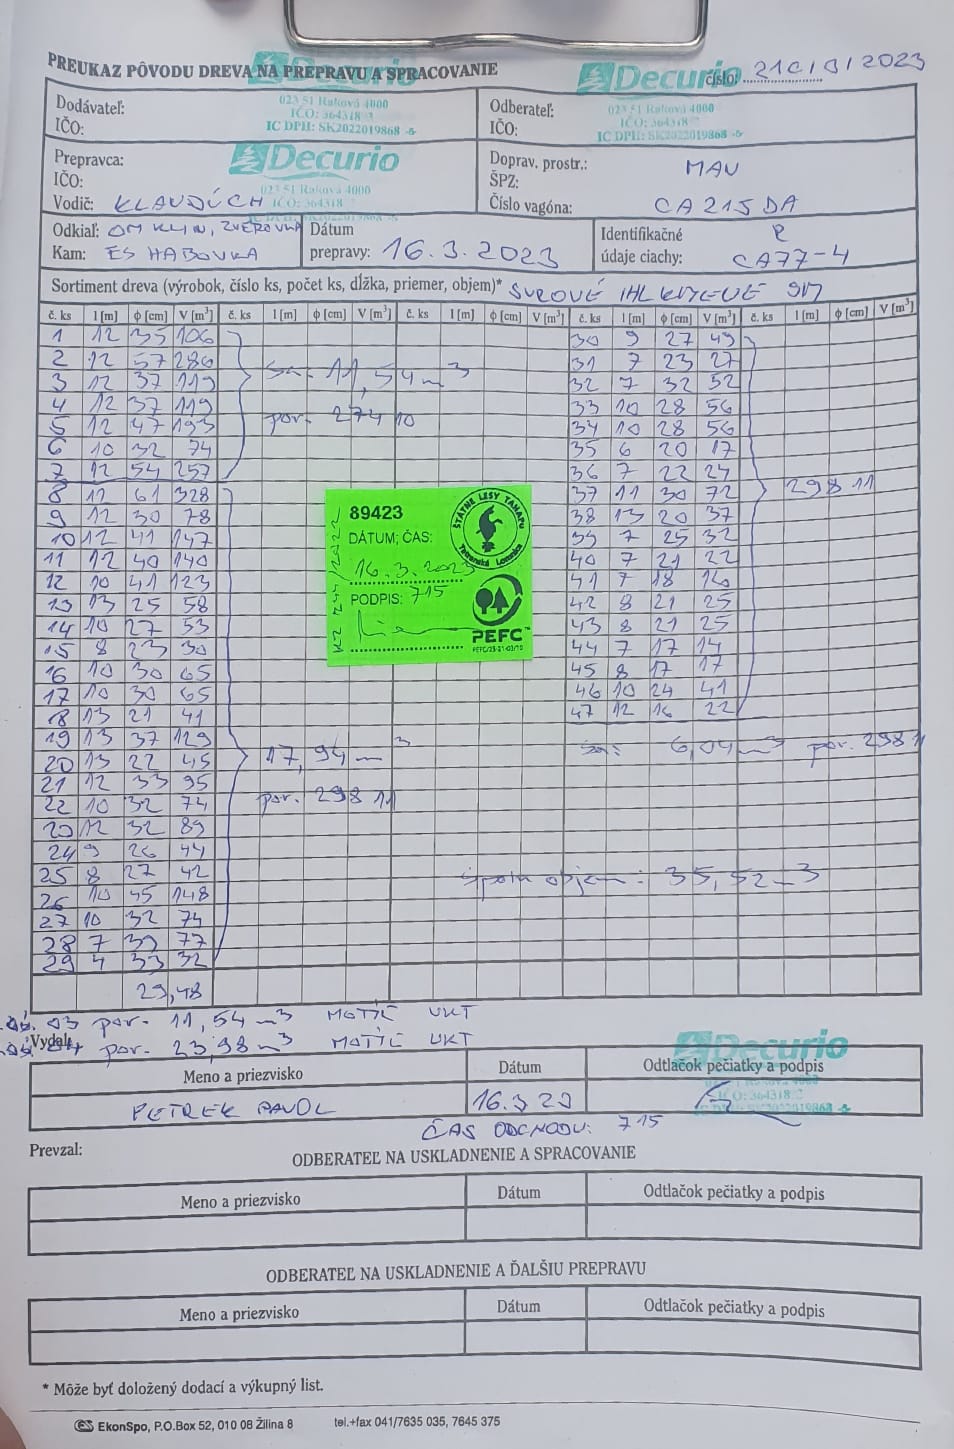 PREUKAZ PÔVODU DREVA NA PREPRAVU A SPRACOVANIE
Decurio
číslo: 210/3/2023
Dodávateľ:
IČO:
023 51 Raková 4000
IČO: 364318
IC DPH: SK2022019868
Odberateľ:
IČO:
023 51 Raková 4000
IČO: 364318
IC DPH: SK2022019868
Prepravca:
IČO:
Vodič: KLAVDÚCH
Decurio
023 51 Raková 4000
IČO: 364318
Doprav. prostr.: MAN
ŠPZ:
Číslo vagóna: CA215DA
Odkiaľ: OM KLIN, ZVEROVKA
Kam: ES HABOVKA
Dátum
prepravy: 16.3.2023
Identifikačné
údaje ciachy: CA77-4
Sortiment dreva (výrobok, číslo ks, počet ks, dĺžka, priemer, objem)* SUROVÉ
č. ks l [m] ϕ [cm] V [m³] č. ks l [m] ϕ [cm] V [m³] č. ks l [m] ϕ [cm] V [m³] č. ks l [m] ϕ [cm] V [m³] č. ks l [m] ϕ [cm] V [m³]
1 12 35 106
2 12 57 286
3 12 37 119
4 12 37 119
5 12 47 193
6 10 32 74
7 12 54 257
11,54 m³
por. 274 10
8 12 61 328
9 12 30 78
10 12 41 147
11 12 40 140
12 10 41 123
13 13 25 58
14 10 27 53
15 8 23 30
16 10 30 65
17 10 30 65
18 13 21 41
19 13 37 129
20 13 22 45
21 12 33 95
22 10 32 74
20 12 32 89
24 9 26 44
25 8 27 42
26 10 45 148
27 10 32 74
28 7 39 77
29 4 33 32
17,94 m³
por. 298 11
29,48
30 9 27 49
31 7 23 27
32 7 32 52
33 10 28 56
34 10 28 56
35 6 20 17
36 7 22 24
37 11 30 72
38 13 20 37
39 7 25 32
40 7 21 22
41 7 18 16
42 8 21 25
43 8 21 25
44 7 17 14
45 8 17 17
46 10 24 41
47 12 16 22
298 11
6,04 m³ por. 298 11
objem: 35,52 m³
89423
DÁTUM; ČAS:
16.3.2023
PODPIS: 715
ŠTÁTNE LESY TANAPu
Tatranská Lomnica
PEFC™
03 por. 11,54 m³ MOTÍĽ UKT
04 por. 23,98 m³ MOTÍĽ UKT
Vydal:
Decurio
IČO: 364318
IC DPH: SK2022019868
Meno a priezvisko Dátum Odtlačok pečiatky a podpis
PETREK PAVOL 16.3 23
ČAS ODCHODU: 715
Prevzal:
ODBERATEĽ NA USKLADNENIE A SPRACOVANIE
Meno a priezvisko Dátum Odtlačok pečiatky a podpis
ODBERATEĽ NA USKLADNENIE A ĎALŠIU PREPRAVU
Meno a priezvisko Dátum Odtlačok pečiatky a podpis
* Môže byť doložený dodací a výkupný list.
EkonSpo, P.O.Box 52, 010 08 Žilina 8 tel.+fax 041/7635 035, 7645 375